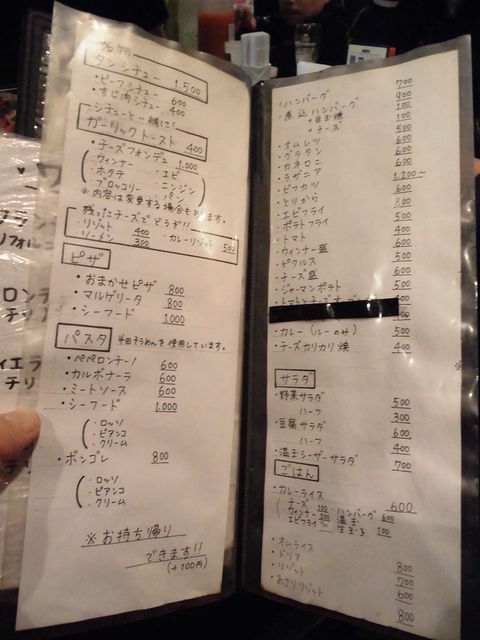 名物
タンシチュー 1.500
・ビーフシチュー 600
・すじ肉シチュー 400
シチューと一緒に!
ガーリックトースト 400
・チーズフォンデュ 1.000
・ウィンナー ・エビ
・ホタテ ・ニンジン
・ブロッコリー ・パン
※内容は変更する場合もあります。
残ったチーズでどうぞ!!
・リゾット 400 ・カレーリゾット 500
・ソーメン 300
ピザ
・おまかせピザ 800
・マルゲリータ 800
・シーフード 1000
パスタ 半田そうめんを使用しています。
・ペペロンチーノ 600
・カルボナーラ 600
・ミートソース 600
・シーフード 1.000
・ロッソ
・ビアンコ
・クリーム
・ボンゴレ 800
・ロッソ
・ビアンコ
・クリーム
※お持ち帰り
できます!!
(+100円)
・ハンバーグ 700
・煮込ハンバーグ 900
+目玉焼 100
+チーズ 100
・オムレツ 500
・グラタン 600
・カネロニ 600
・ラザニア 600
・ビフカツ 1.200~
・とりから 600
・エビフライ 800
・ポテトフライ 500
・トマト 400
・ウィンナー盛 600
・ピクルス 500
・チーズ盛 600
・ジャーマンポテト 500
・カレー(ルーのみ) 500
・チーズカリカリ焼 400
サラダ
・野菜サラダ 500
ハーフ 300
・豆腐サラダ 600
ハーフ 400
・温玉シーザーサラダ 700
ごはん
・カレーライス 600
・チーズ 100 ・ハンバーグ 600
・ウィンナー 200 温玉
・エビフライ 生玉
・オムライス 800
・ドリア 700
・リゾット 600
・あさりリゾット 800